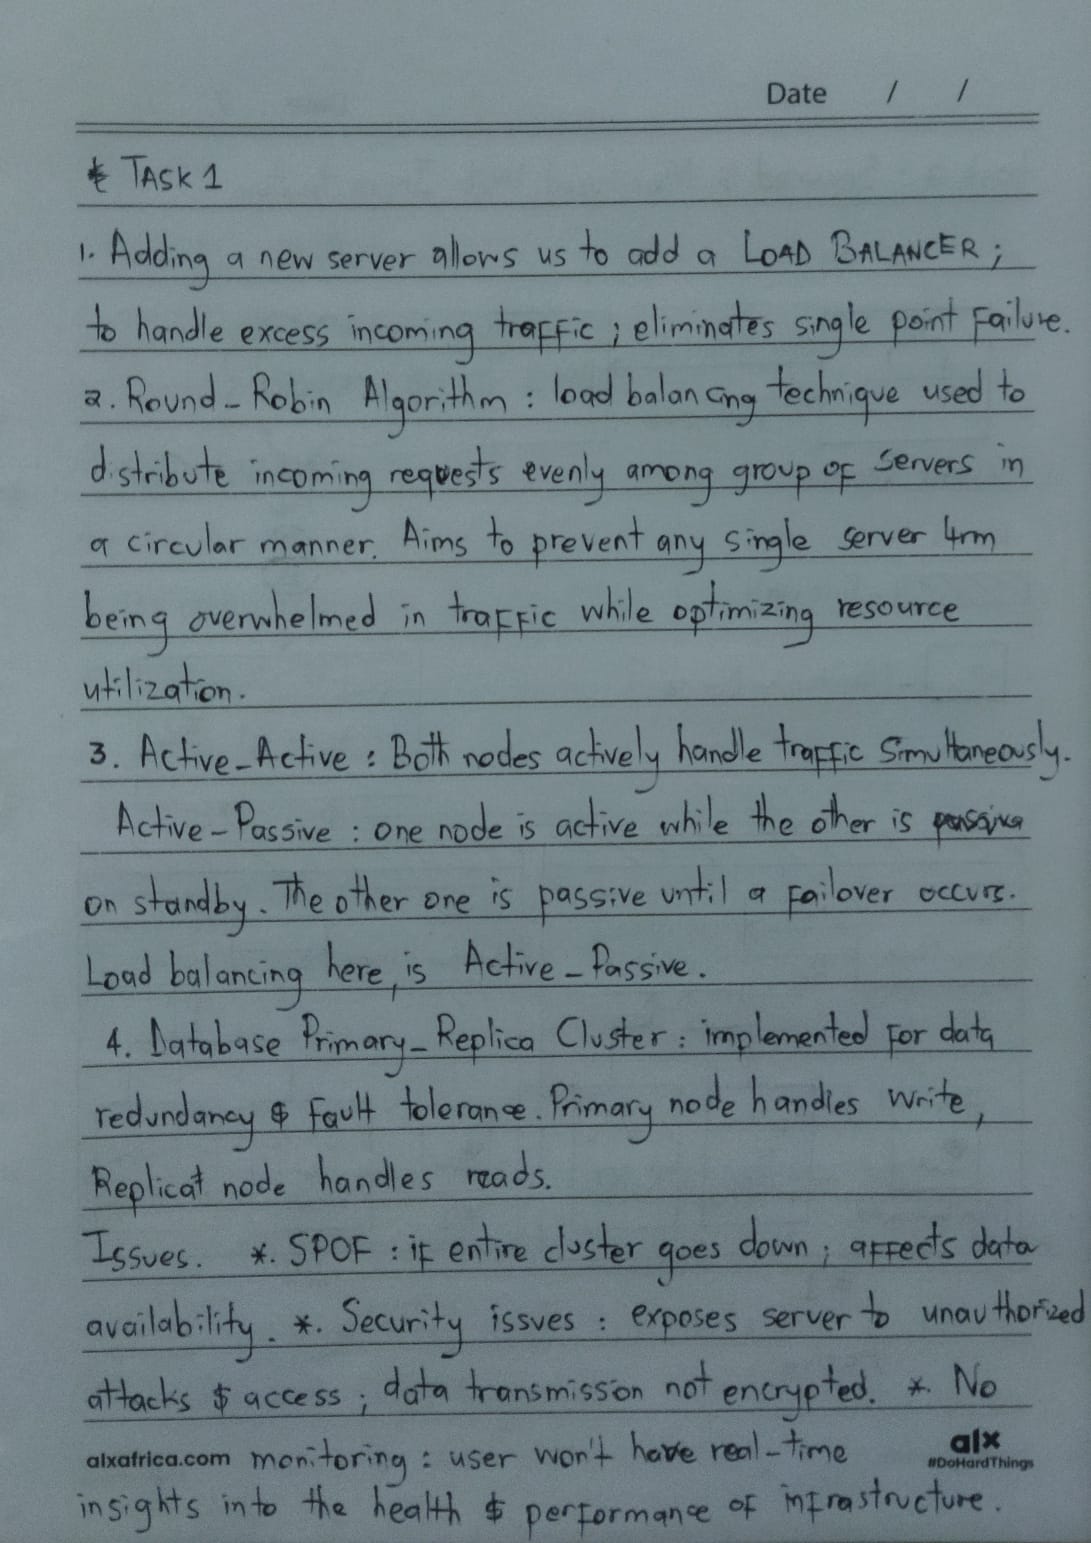 Date / /
* TASK 1
1. Adding a new server allows us to add a LOAD BALANCER;
to handle excess incoming traffic; eliminates single point Failure.
2. Round-Robin Algorithm: load balancing technique used to
distribute incoming requests evenly among group of servers in
a circular manner. Aims to prevent any single server 4rm
being overwhelmed in traffic while optimizing resource
utilization.
3. Active-Active: Both nodes actively handle traffic Simultaneously.
Active-Passive: one node is active while the other is
on standby. The other one is passive until a Failover occurs.
Load balancing here, is Active-Passive.
4. Database Primary-Replica Cluster: implemented For data
redundancy & Fault tolerance. Primary node handles write,
Replicat node handles reads.
Issues. *. SPOF: if entire cluster goes down; affects data
availability. *. Security issues: exposes server to unauthorized
attacks & access; data transmission not encrypted. *. No
alxafrica.com monitoring: user won't have real-time alx
#DoHardThings
insights into the health & performance of infrastructure.